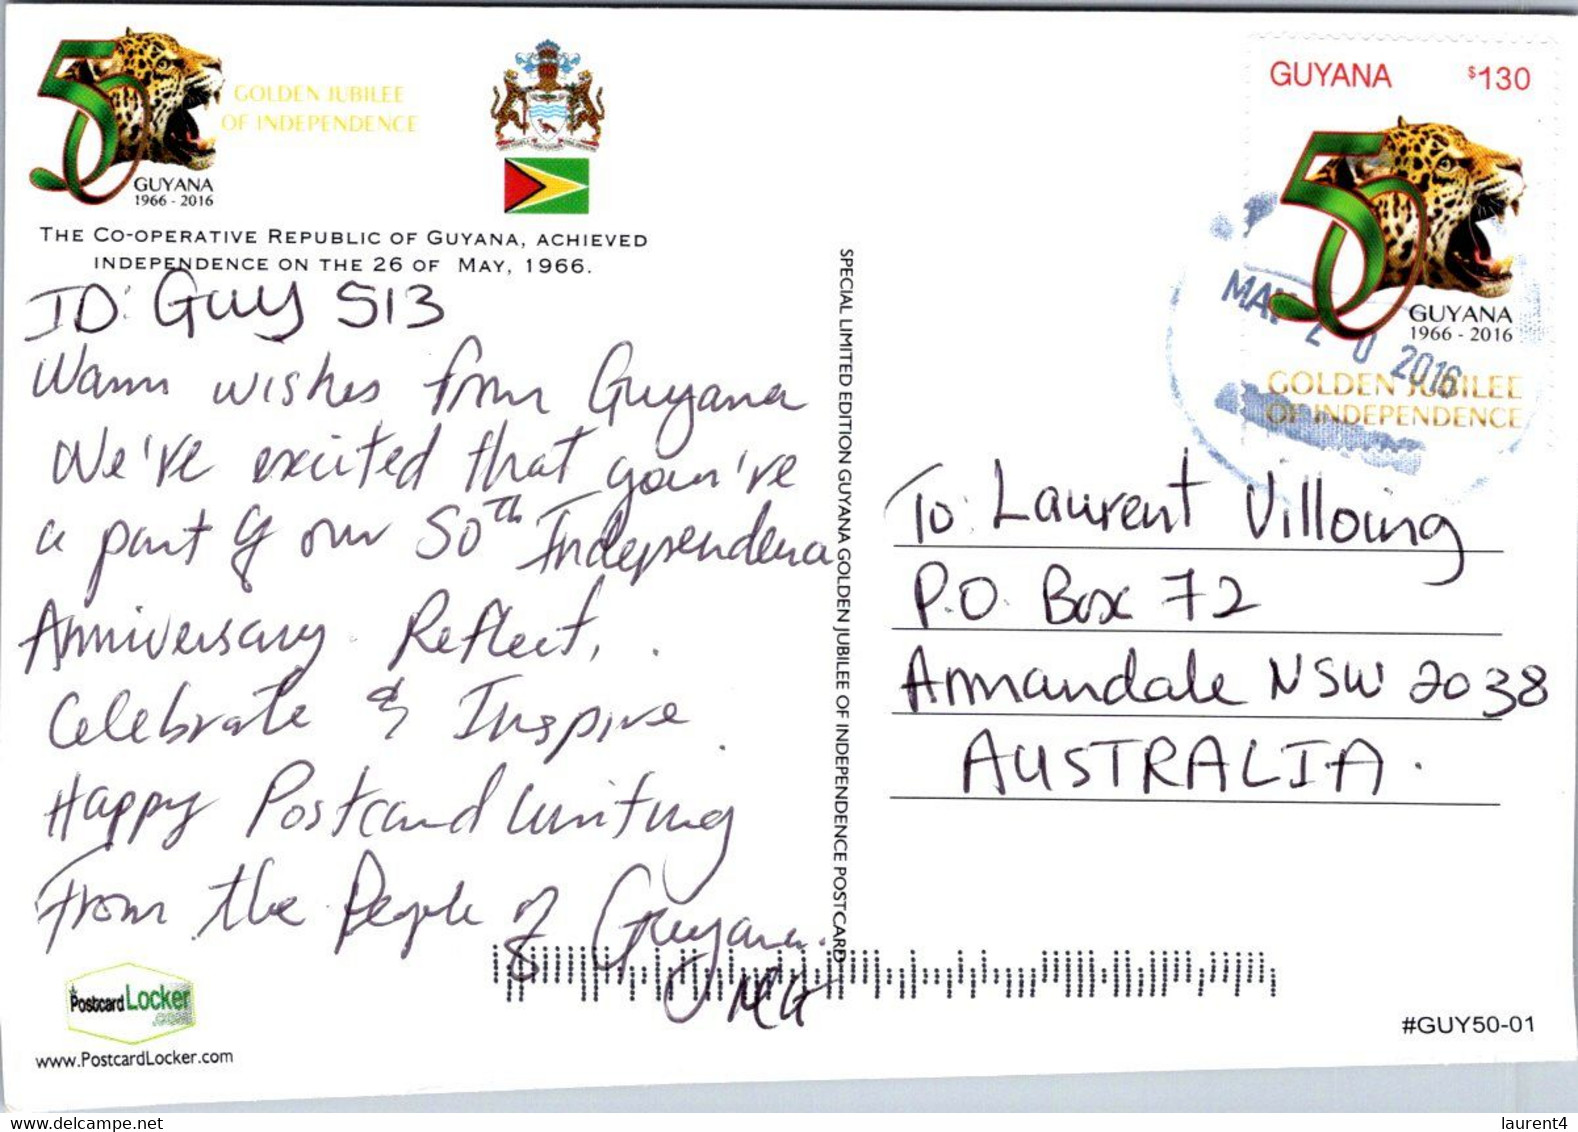 GOLDEN JUBILEE
OF INDEPENDENCE
50
GUYANA
1966 - 2016
THE CO-OPERATIVE REPUBLIC OF GUYANA, ACHIEVED
INDEPENDENCE ON THE 26 OF MAY, 1966.
ID: Guy 513
Warm wishes from Guyana
We've excited that you've
a part of our 50th Independence
Anniversary. Reflect,.
Celebrate & Inspire.
Happy Postcard Writing
From the People of Guyana.
Postcard Locker
.com
www.PostcardLocker.com
SPECIAL LIMITED EDITION GUYANA GOLDEN JUBILEE OF INDEPENDENCE POSTCARD
GUYANA $130
50
GUYANA
1966 - 2016
GOLDEN JUBILEE
OF INDEPENDENCE
MAY 20 2016
To: Laurent Villoing
P.O. Box 72
Annandale NSW 2038
AUSTRALIA.
#GUY50-01
www.delcampe.net
laurent4